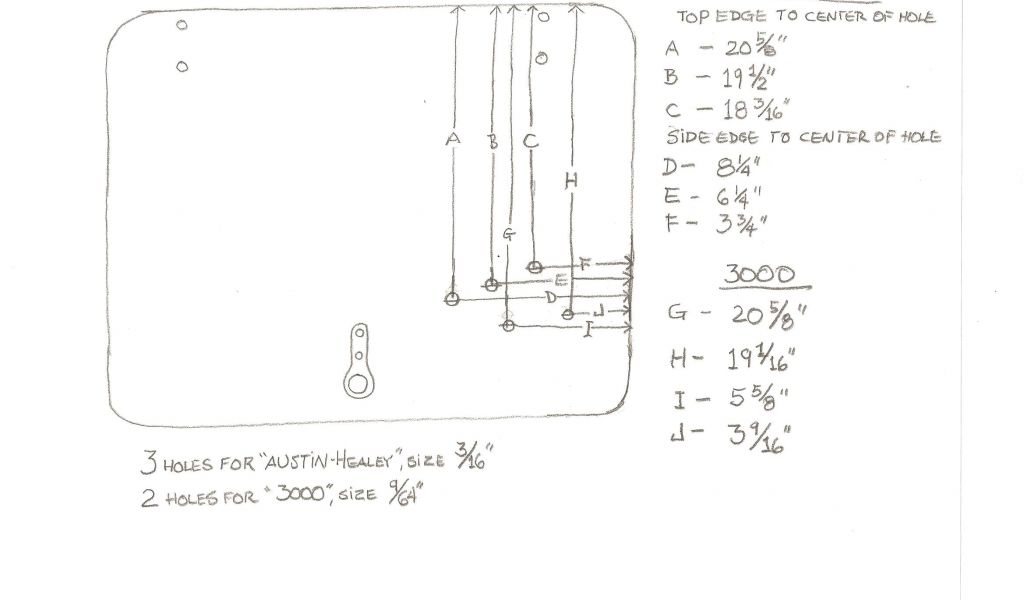 TOP EDGE TO CENTER OF HOLE
A - 20 5/8"
B - 19 1/2"
C - 18 3/16"
SIDE EDGE TO CENTER OF HOLE
D - 8 1/4"
E - 6 1/4"
F - 3 3/4"
3000
G - 20 5/8"
H - 19 1/16"
I - 5 5/8"
J - 3 9/16"
A
B
C
H
G
F
E
D
J
I
3 HOLES FOR "AUSTIN-HEALEY", SIZE 3/16"
2 HOLES FOR "3000", SIZE 9/64"